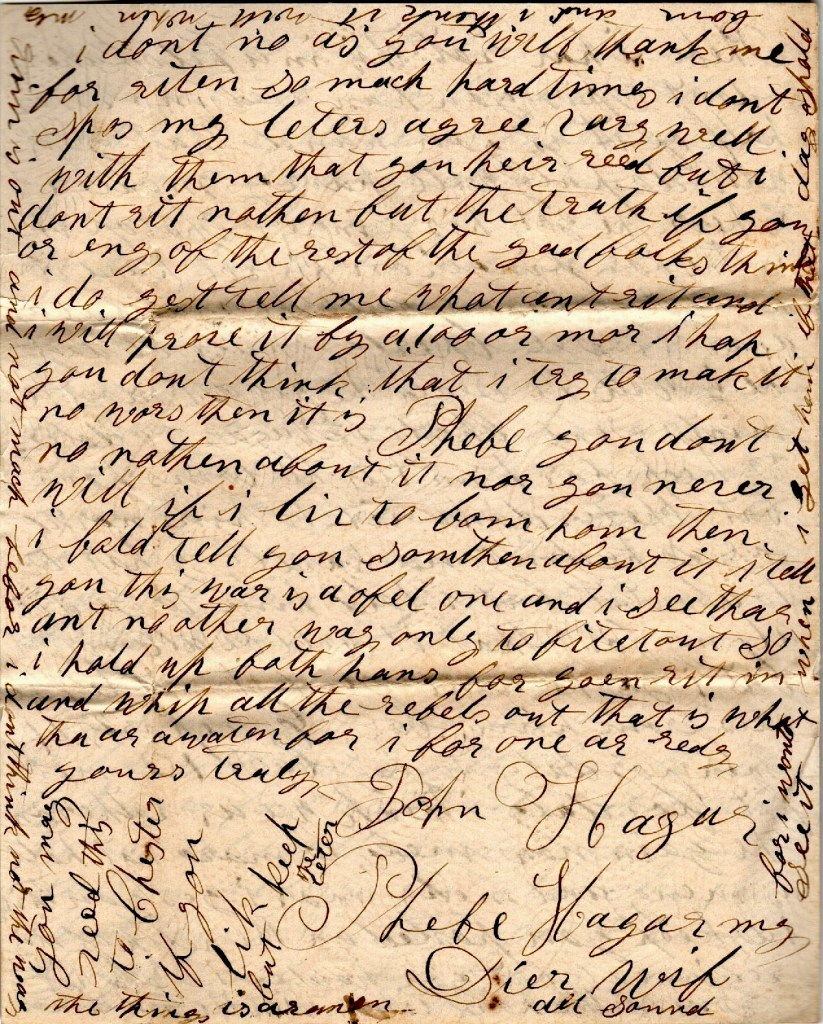 i dont no as you will thank me
for riten so mach hard times i dont
spos my leters agree vary well
with them that you heir reed but i
dont rit nathen but the trath if you
or eny of the rest of the gud folks think
i do gest tell me what ant rit and
i will prove it by a 100 or mor i hap
you dont think that i try to mak it
no wors then it is Phebe you dont
no nathen about it nor you never
will if i liv to bom hom then
i bold tell you somthen about it i tell
you this war is a ofel one and i see thar
ant no other way only to fite tout so
i hold up both hans for goen rit in
and whip all the rebels out that is what
tha ar a waten for i for one ar redy
yours traly
John Hagar
Phebe Hagar my
Dier Wif
all sound
you may
reed this
to Chester
if you
lik
but keep
the leter
the things is a
bom and i thank it wont
and not mach
i dont think
not the
if that day shold
when i get hom
for i wont
see it